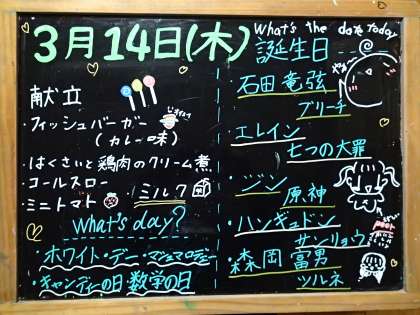 3月14日(木)
What's the date today
献立
・フィッシュバーガー
(カレー味)
・はくさいと鶏肉のクリーム煮
・コールスロー
・ミニトマト ・ミルク
What's day?
・ホワイト・デー・マシュマロデー
・キャンディーの日 数学の日
誕生日
・石田 竜弦
ブリーチ
・エレイン
七つの大罪
・ジン
原神
・ハンギョドン
サンリョウ
・森岡 富男
ツルネ